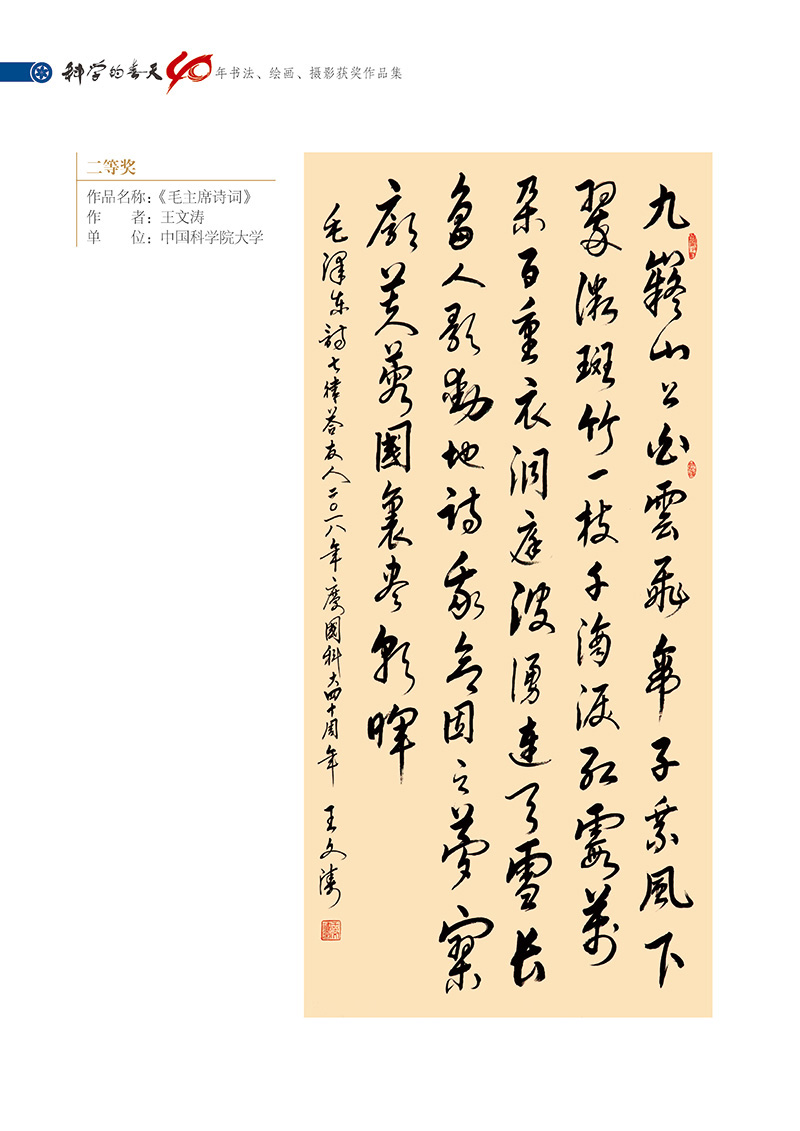 科学的春天40年书法、绘画、摄影获奖作品集
二等奖
作品名称：《毛主席诗词》
作　　者：王文涛
单　　位：中国科学院大学
九嶷山上白雲飛帝子乘風下
翠微斑竹一枝千滴淚紅霞萬
朵百重衣洞庭波湧連天雪長
島人歌動地詩我欲因之夢寥
廓芙蓉國裏盡朝暉
毛澤東詩七律答友人二〇一八年慶國科大四十周年 王文濤